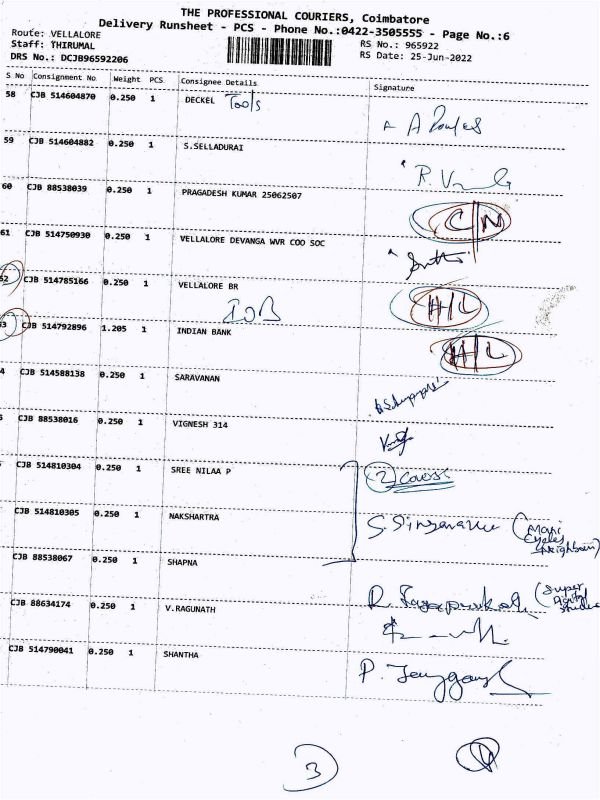 THE PROFESSIONAL COURIERS, Coimbatore
Delivery Runsheet - PCS - Phone No.:0422-3505555 - Page No.:6
Route: VELLALORE
Staff: THIRUMAL
DRS No.: DCJB96592206
RS No.: 965922
RS Date: 25-Jun-2022
S No Consignment No Weight PCS Consignee Details Signature
58 CJB 514604870 0.250 1 DECKEL Tools
59 CJB 514604882 0.250 1 S.SELLADURAI
60 CJB 88538039 0.250 1 PRAGADESH KUMAR 25062507 C/N
61 CJB 514750930 0.250 1 VELLALORE DEVANGA WVR COO SOC
52 CJB 514785166 0.250 1 VELLALORE BR H/L
IOB
53 CJB 514792896 1.205 1 INDIAN BANK H/L
4 CJB 514588138 0.250 1 SARAVANAN
CJB 88538016 0.250 1 VIGNESH 314
CJB 514810304 0.250 1 SREE NILAA P 2
CJB 514810305 0.250 1 NAKSHARTRA
CJB 88538067 0.250 1 SHAPNA
CJB 88634174 0.250 1 V.RAGUNATH
CJB 514790041 0.250 1 SHANTHA
3